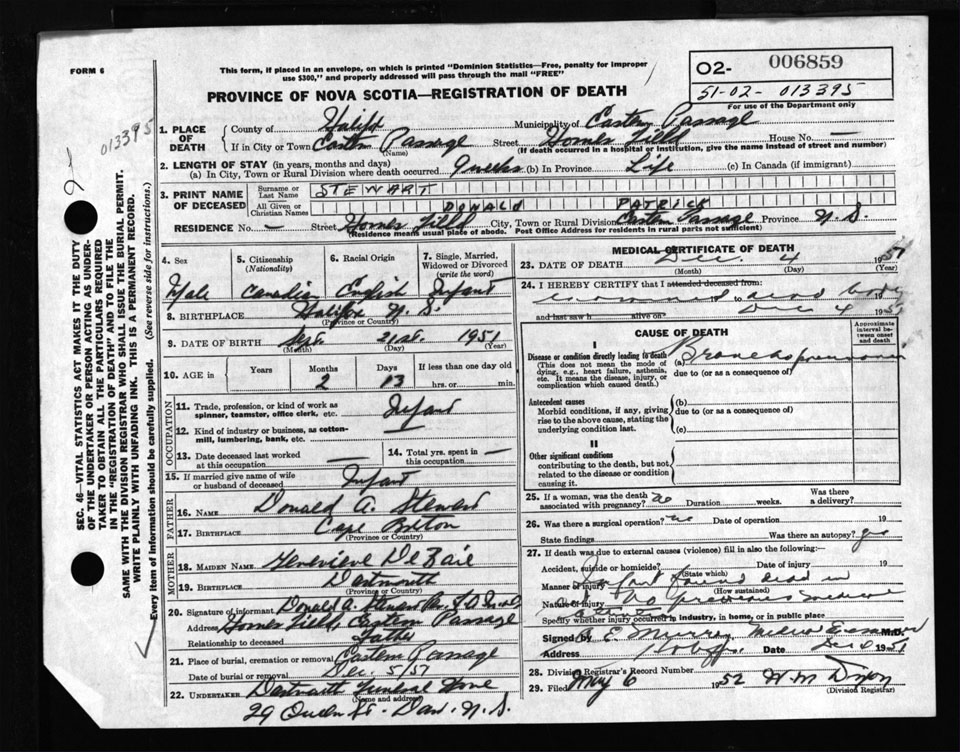 FORM 6
This form, if placed in an envelope, on which is printed "Dominion Statistics—Free, penalty for improper
use $300," and properly addressed will pass through the mail "FREE"
PROVINCE OF NOVA SCOTIA—REGISTRATION OF DEATH
02- 006859
51-02- 013395
For use of the Department only
013395
SEC. 46—VITAL STATISTICS ACT MAKES IT THE DUTY
OF THE UNDERTAKER OR PERSON ACTING AS UNDER-
TAKER TO OBTAIN ALL THE PARTICULARS REQUIRED
IN THE "REGISTRATION OF DEATH" AND TO FILE THE
SAME WITH THE DIVISION REGISTRAR WHO SHALL ISSUE THE BURIAL PERMIT.
WRITE PLAINLY WITH UNFADING INK. THIS IS A PERMANENT RECORD.
Every item of information should be carefully supplied. (See reverse side for instructions.)
1. PLACE OF DEATH
County of Halifax Municipality of Eastern Passage
If in City or Town Eastern Passage Street Homes Field House No. —
(Name) (If death occurred in a hospital or institution, give the name instead of street and number)
2. LENGTH OF STAY (in years, months and days)
(a) In City, Town or Rural Division where death occurred 9 weeks (b) In Province Life (c) In Canada (if immigrant)
3. PRINT NAME OF DECEASED
Surname or Last Name STEWART
All Given or Christian Names DONALD PATRICK
RESIDENCE No. — Street Homes Field City, Town or Rural Division Eastern Passage Province N.S.
(Residence means usual place of abode. Post Office Address for residents in rural parts not sufficient)
4. Sex
Male
5. Citizenship (Nationality)
Canadian
6. Racial Origin
English
7. Single, Married, Widowed or Divorced (write the word)
Infant
8. BIRTHPLACE Halifax N.S.
(Province or Country)
9. DATE OF BIRTH Sept. 21st. 1951
(Month) (Day) (Year)
10. AGE in Years Months Days If less than one day old
2 13 hrs. or min.
OCCUPATION
11. Trade, profession, or kind of work as spinner, teamster, office clerk, etc. Infant
12. Kind of industry or business, as cotton-mill, lumbering, bank, etc. —
13. Date deceased last worked at this occupation —
14. Total yrs. spent in this occupation —
15. If married give name of wife or husband of deceased Infant
FATHER
16. NAME Donald A. Stewart
17. BIRTHPLACE Cape Breton
(Province or Country)
MOTHER
18. MAIDEN NAME Genevieve
19. BIRTHPLACE Dartmouth
(Province or Country)
20. Signature of informant Donald A. Stewart
Address Homes Field, Eastern Passage
Relationship to deceased Father
21. Place of burial, cremation or removal Eastern Passage
Date of burial or removal Dec. 5/51
22. UNDERTAKER Dartmouth Funeral Home
(Name and address)
29 Queen St. Dart. N.S.
MEDICAL CERTIFICATE OF DEATH
23. DATE OF DEATH Dec. 4 1951
(Month) (Day) (Year)
24. I HEREBY CERTIFY that I attended deceased from:
examined to dead body 19
and last saw h alive on Dec 4 1951
CAUSE OF DEATH
Approximate interval between onset and death
I
Disease or condition directly leading to death (a)
(This does not mean the mode of dying, e.g., heart failure, asthenia, etc. It means the disease, injury, or complication which caused death.)
Bronchopneumonia
due to (or as a consequence of)
Antecedent causes
Morbid conditions, if any, giving rise to the above cause, stating the underlying condition last.
(b)
due to (or as a consequence of)
(c)
II
Other significant conditions
contributing to the death, but not related to the disease or condition causing it.
25. If a woman, was the death associated with pregnancy? no Duration weeks. Was there a delivery?
26. Was there a surgical operation? no Date of operation 19
State findings Was there an autopsy? yes
27. If death was due to external causes (violence) fill in also the following:—
Accident, suicide or homicide? Date of injury 19
(State which)
Manner of injury Infant found dead in
(How sustained)
Nature of injury No previous
Specify whether injury occurred in industry, in home, or in public place
Signed by E. Murray Medical Examiner M.D.
Address Halifax Date Dec 6 1951
28. Division Registrar's Record Number
29. Filed May 6 1952 W. M. Dixon
(Division Registrar)